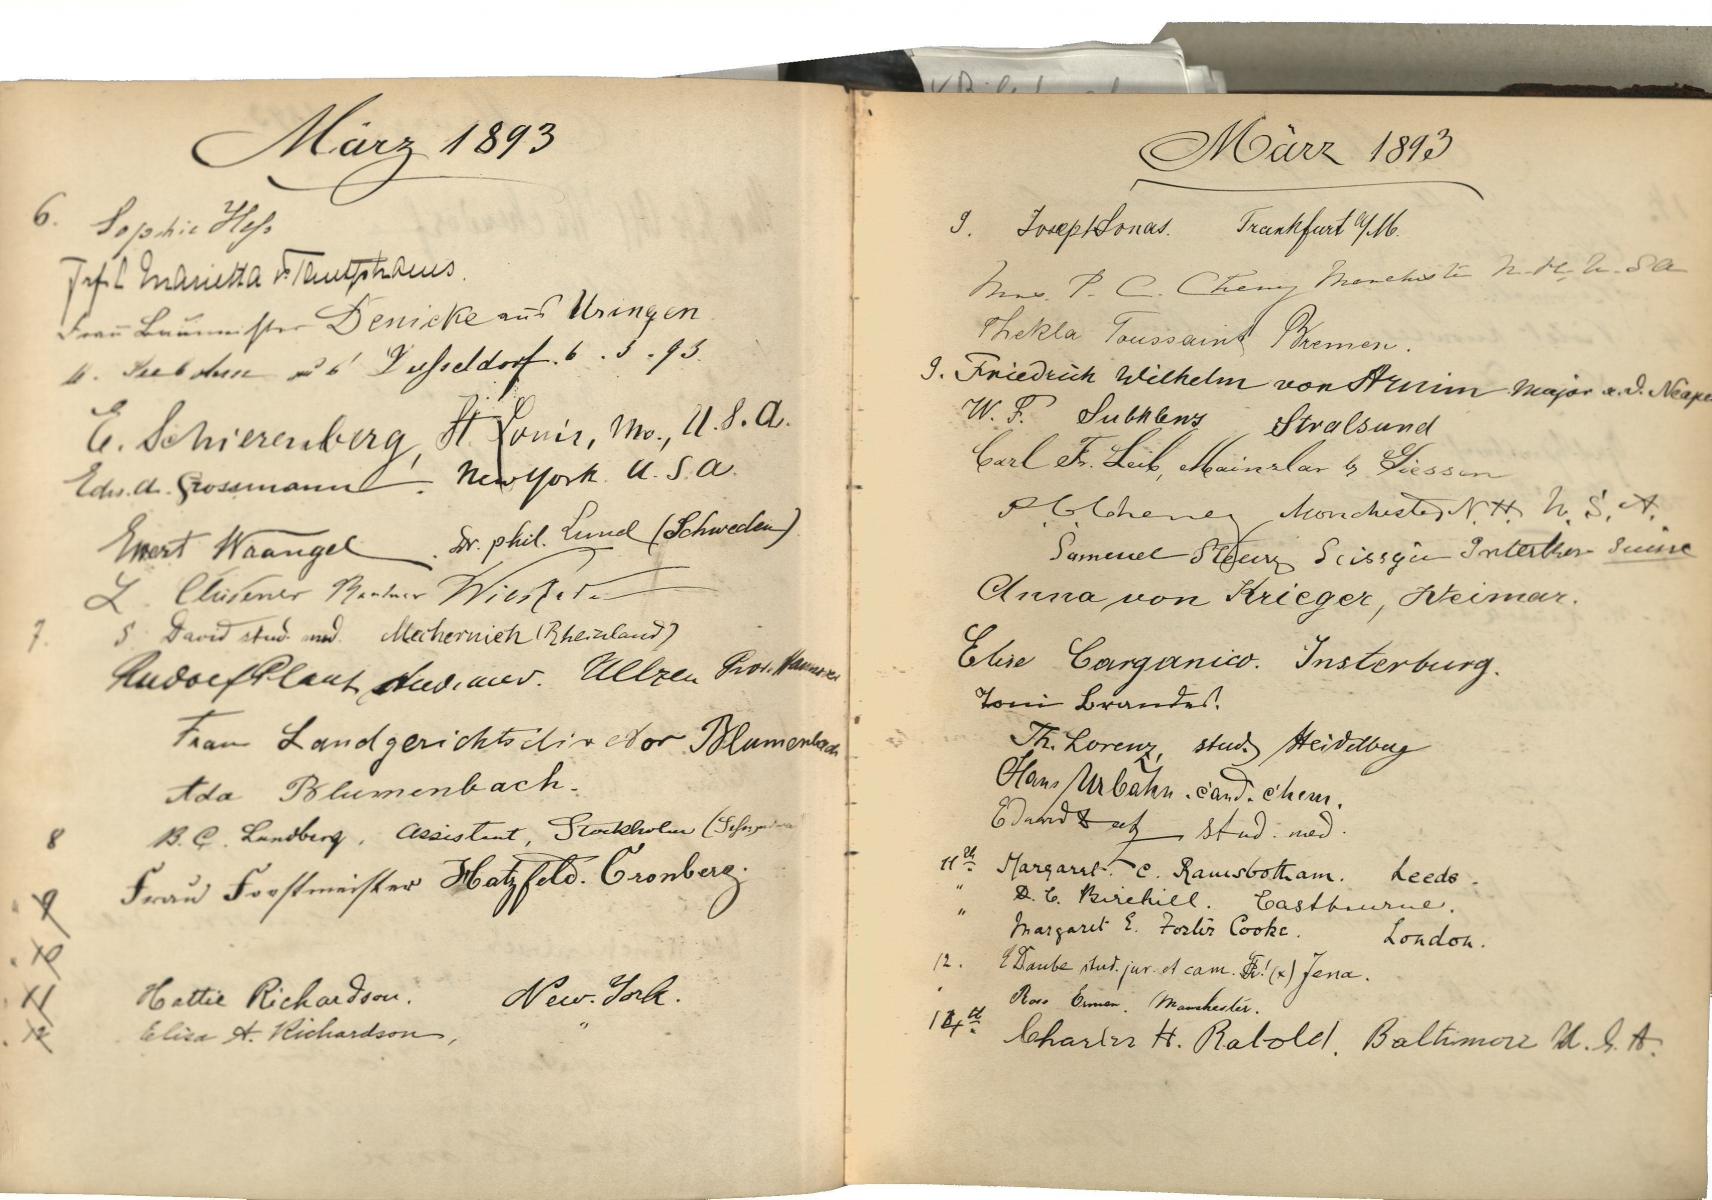 März 1893
6. Sophie Heß
Marietta v.
Frau Baumeister Denicke aus Usingen
Düsseldorf. 6. 3. 93.
E. Schierenberg, St. Louis, Mo., U.S.A.
Edw. A. Grossmann. New York. U.S.A.
Ewert Wrangel. Dr. phil. Lund (Schweden)
L. Clüsener Rentner
7. S. David stud. med. Mechernich (Rheinland)
Rudolf Plant, stud. med. Ülzen Prov. Hannover
Frau Landgerichtsdirektor Blumenbach
Ada Blumenbach.
8 B. C. Lundberg, Assistent, Stockholm
Frau Forstmeister Hatzfeld. Cronberg.
9
10
11 Hattie Richardson. New-York.
12 Eliza A. Richardson, "
März 1893
9. Joseph Jonas. Frankfurt a/M.
Mrs. P. C. Cheney Manchester N.H. U.S.A
Thekla Toussaint Bremen.
9. Friedrich Wilhelm von Arnim Major a.D.
W. F. Subklenz Stralsund
Carl Fr. Leib, Mainzlar b/ Giessen
P. C. Cheney Manchester N.H. U.S.A.
Samuel Interlaken Suisse
Anna von Krieger, Weimar.
Elise Carganico. Insterburg.
Toni Brandes.
Th. Lorenz, stud. Heidelberg
Hans Urbahn. cand. chem.
Eduard stud. med.
11th Margaret. C. Ramsbotham. Leeds.
" D. C. Birchill. Eastbourne.
" Margaret E. Forster Cooke. London.
12. E Daube stud. jur. et cam. (x) Jena.
" Rose Ermen. Manchester.
14th Charles H. Rabold. Baltimore U.S.A.